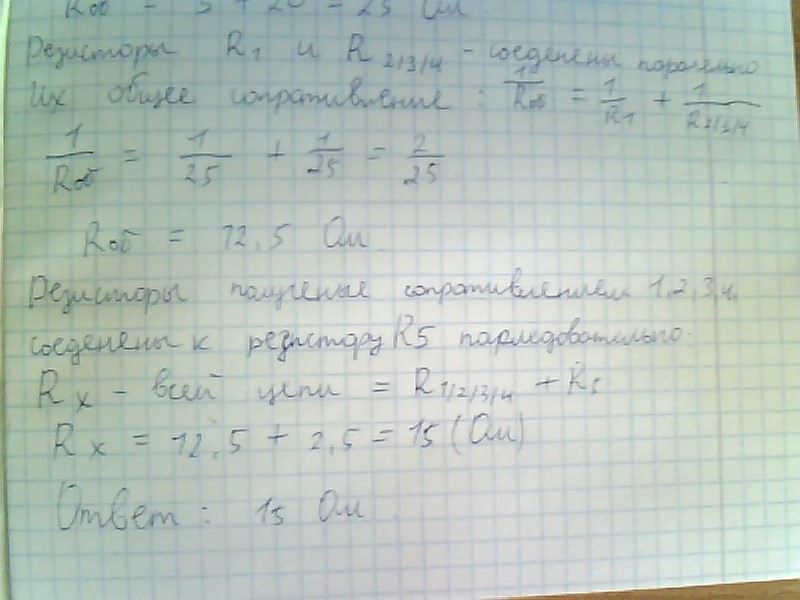 Rоб = 5 + 20 = 25 Ом
Резисторы R1 и R 2/3/4 - соеденены паралельно
Их общее сопративление : 1/Rоб = 1/R1 + 1/R2/3/4
1/Rоб = 1/25 + 1/25 = 2/25
Rоб = 12.5 Ом
Резисторы полученые сопротивлением 1,2,3,4.
соеденены к резистору R5 последовательно.
Rx - всей цепи = R1/2/3/4 + R5
Rx = 12.5 + 2,5 = 15 (Ом)
Ответ : 15 Ом